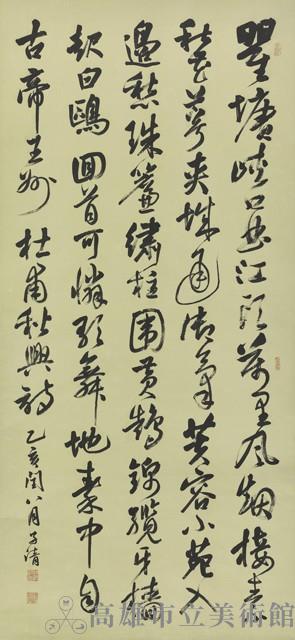 瞿塘峽口曲江頭萬里風烟接素
秋花萼夾城通御氣芙容小苑入
邊愁珠簾繡柱圍黃鵠錦纜牙檣
起白鷗回首可憐歌舞地秦中自
古帝王州 杜甫秋興詩 乙亥閏八月子清
高雄市立美術館